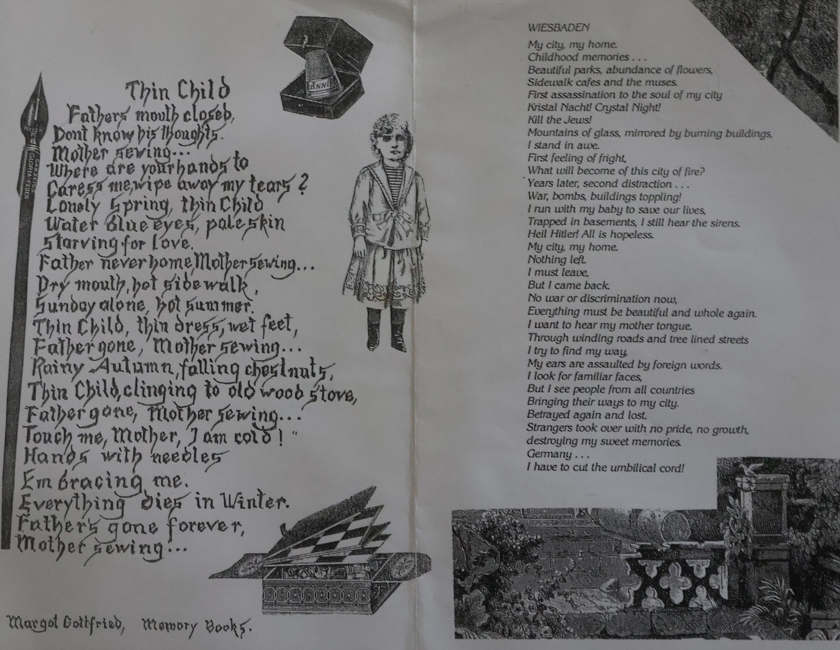 Thin Child
Fathers mouth closed,
Dont know his thoughts.
Mother sewing...
Where are your hands to
Caress me, wipe away my tears?
Lonely Spring, thin Child
Water Blue eyes, pale skin
Starving for Love.
Father never home, Mother sewing...
Dry mouth, hot sidewalk,
Sunday alone, hot summer.
Thin Child, thin dress, wet feet,
Father gone, Mother sewing...
Rainy Autumn, falling chestnuts,
Thin Child, clinging to old wood stove,
Father gone, Mother sewing...
Touch me, Mother, I am cold!
Hands with needles
Embracing me.
Everything dies in Winter.
Father's gone forever,
Mother sewing...
Margot Gottfried, Memory Books.
ANNA
WIESBADEN
My city, my home.
Childhood memories . . .
Beautiful parks, abundance of flowers,
Sidewalk cafes and the muses.
First assassination to the soul of my city
Kristal Nacht! Crystal Night!
Kill the Jews!
Mountains of glass, mirrored by burning buildings,
I stand in awe.
First feeling of fright,
What will become of this city of fire?
Years later, second distraction . . .
War, bombs, buildings toppling!
I run with my baby to save our lives,
Trapped in basements, I still hear the sirens.
Heil Hitler! All is hopeless.
My city, my home.
Nothing left.
I must leave,
But I came back.
No war or discrimination now,
Everything must be beautiful and whole again.
I want to hear my mother tongue.
Through winding roads and tree lined streets
I try to find my way,
My ears are assaulted by foreign words.
I look for familiar faces,
But I see people from all countries
Bringing their ways to my city.
Betrayed again and lost.
Strangers took over with no pride, no growth,
destroying my sweet memories.
Germany . . .
I have to cut the umbilical cord!